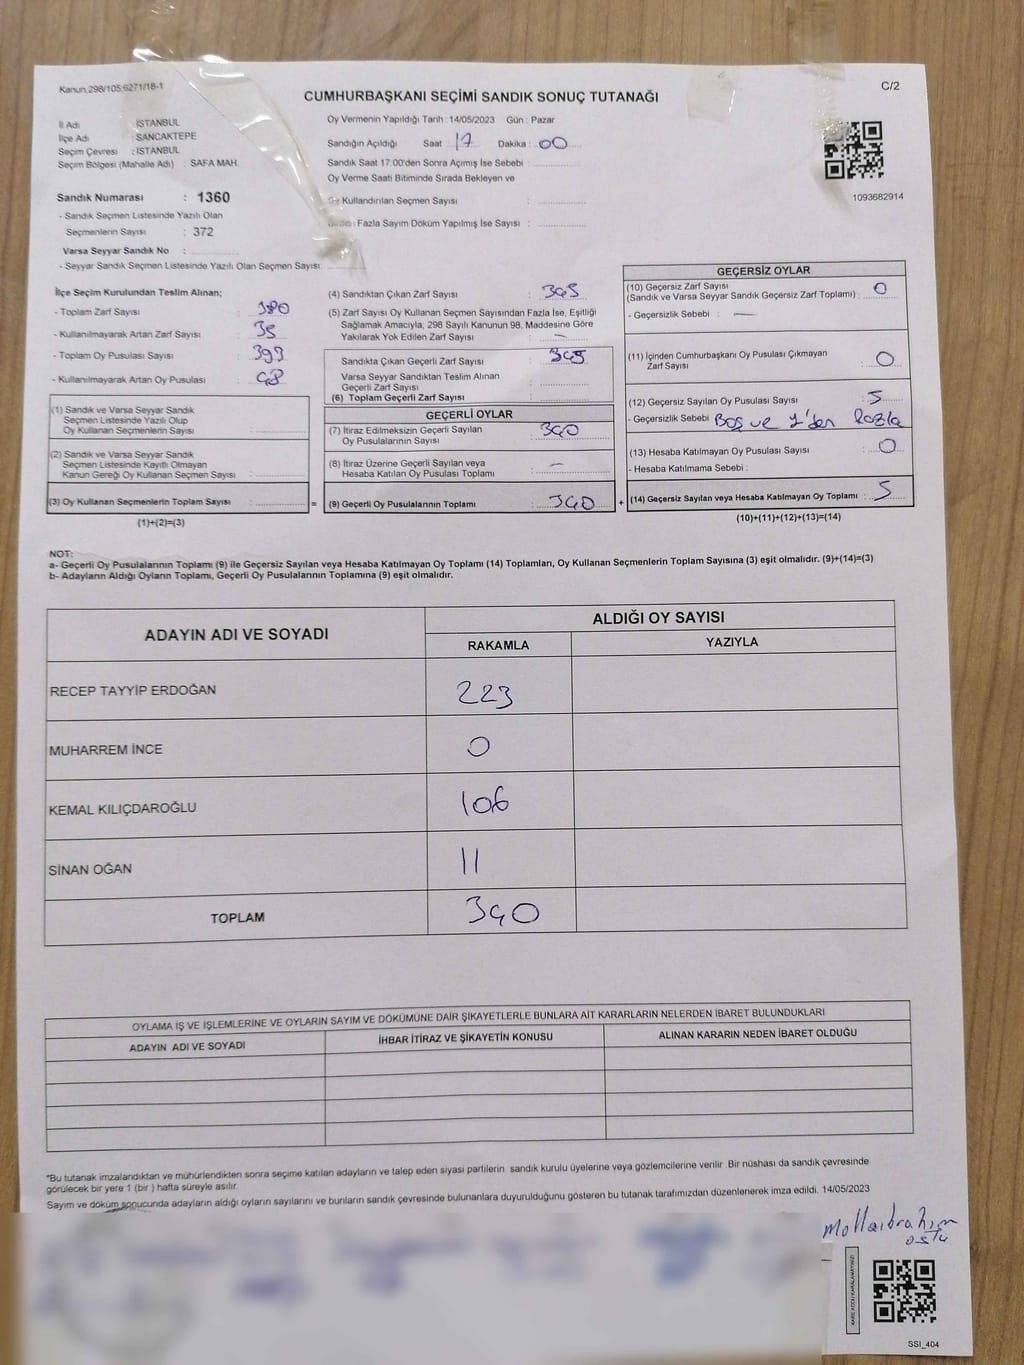 Kanun, 298/105;6271/18-1
C/2
CUMHURBAŞKANI SEÇİMİ SANDIK SONUÇ TUTANAĞI
İl Adı : İSTANBUL
İlçe Adı : SANCAKTEPE
Seçim Çevresi : İSTANBUL
Seçim Bölgesi (Mahalle Adı) : SAFA MAH.
Sandık Numarası : 1360
- Sandık Seçmen Listesinde Yazılı Olan
Seçmenlerin Sayısı : 372
Varsa Seyyar Sandık No :
- Seyyar Sandık Seçmen Listesinde Yazılı Olan Seçmen Sayısı:
Oy Vermenin Yapıldığı Tarih : 14/05/2023 Gün : Pazar
Sandığın Açıldığı Saat : 17 Dakika : 00
Sandık Saat 17:00'den Sonra Açımış İse Sebebi :
Oy Verme Saati Bitiminde Sırada Bekleyen ve
Kullandırılan Seçmen Sayısı :
Fazla Sayım Döküm Yapılmış İse Sayısı :
1093682914
İlçe Seçim Kurulundan Teslim Alınan;
- Toplam Zarf Sayısı : 380
- Kullanılmayarak Artan Zarf Sayısı : 35
- Toplam Oy Pusulası Sayısı : 393
- Kullanılmayarak Artan Oy Pusulası : 48
(1) Sandık ve Varsa Seyyar Sandık
Seçmen Listesinde Yazılı Olup
Oy Kullanan Seçmenlerin Sayısı :
(2) Sandık ve Varsa Seyyar Sandık
Seçmen Listesinde Kayıtlı Olmayan
Kanun Gereği Oy Kullanan Seçmen Sayısı :
(3) Oy Kullanan Seçmenlerin Toplam Sayısı : =
(1)+(2)=(3)
(4) Sandıktan Çıkan Zarf Sayısı : 345
(5) Zarf Sayısı Oy Kullanan Seçmen Sayısından Fazla İse, Eşitliği
Sağlamak Amacıyla; 298 Sayılı Kanunun 98. Maddesine Göre
Yakılarak Yok Edilen Zarf Sayısı : —
Sandıkta Çıkan Geçerli Zarf Sayısı : 345
Varsa Seyyar Sandıktan Teslim Alınan
Geçerli Zarf Sayısı :
(6) Toplam Geçerli Zarf Sayısı :
GEÇERLİ OYLAR
(7) İtiraz Edilmeksizin Geçerli Sayılan
Oy Pusulalarının Sayısı : 340
(8) İtiraz Üzerine Geçerli Sayılan veya
Hesaba Katılan Oy Pusulası Toplamı : —
(9) Geçerli Oy Pusulalarının Toplamı : 340 +
GEÇERSİZ OYLAR
(10) Geçersiz Zarf Sayısı
(Sandık ve Varsa Seyyar Sandık Geçersiz Zarf Toplamı) : 0
- Geçersizlik Sebebi : —
(11) İçinden Cumhurbaşkanı Oy Pusulası Çıkmayan
Zarf Sayısı : 0
(12) Geçersiz Sayılan Oy Pusulası Sayısı : 5
- Geçersizlik Sebebi : Boş ve 1'den fazla
(13) Hesaba Katılmayan Oy Pusulası Sayısı : 0
- Hesaba Katılmama Sebebi :
(14) Geçersiz Sayılan veya Hesaba Katılmayan Oy Toplamı : 5
(10)+(11)+(12)+(13)=(14)
NOT:
a- Geçerli Oy Pusulalarının Toplamı (9) ile Geçersiz Sayılan veya Hesaba Katılmayan Oy Toplamı (14) Toplamları, Oy Kullanan Seçmenlerin Toplam Sayısına (3) eşit olmalıdır. (9)+(14)=(3)
b- Adayların Aldığı Oyların Toplamı, Geçerli Oy Pusulalarının Toplamına (9) eşit olmalıdır.
ADAYIN ADI VE SOYADI
ALDIĞI OY SAYISI
RAKAMLA YAZIYLA
RECEP TAYYİP ERDOĞAN 223
MUHARREM İNCE 0
KEMAL KILIÇDAROĞLU 106
SİNAN OĞAN 11
TOPLAM 340
OYLAMA İŞ VE İŞLEMLERİNE VE OYLARIN SAYIM VE DÖKÜMÜNE DAİR ŞİKAYETLERLE BUNLARA AİT KARARLARIN NELERDEN İBARET BULUNDUKLARI
ADAYIN ADI VE SOYADI İHBAR İTİRAZ VE ŞİKAYETİN KONUSU ALINAN KARARIN NEDEN İBARET OLDUĞU
*Bu tutanak imzalandıktan ve mühürlendikten sonra seçime katılan adayların ve talep eden siyasi partilerin sandık kurulu üyelerine veya gözlemcilerine verilir .Bir nüshası da sandık çevresinde
görülecek bir yere 1 (bir ) hafta süreyle asılır.
Sayım ve döküm sonucunda adayların aldığı oyların sayılarını ve bunların sandık çevresinde bulunanlara duyurulduğunu gösteren bu tutanak tarafımızdan düzenlenerek imza edildi. 14/05/2023
SSI_404